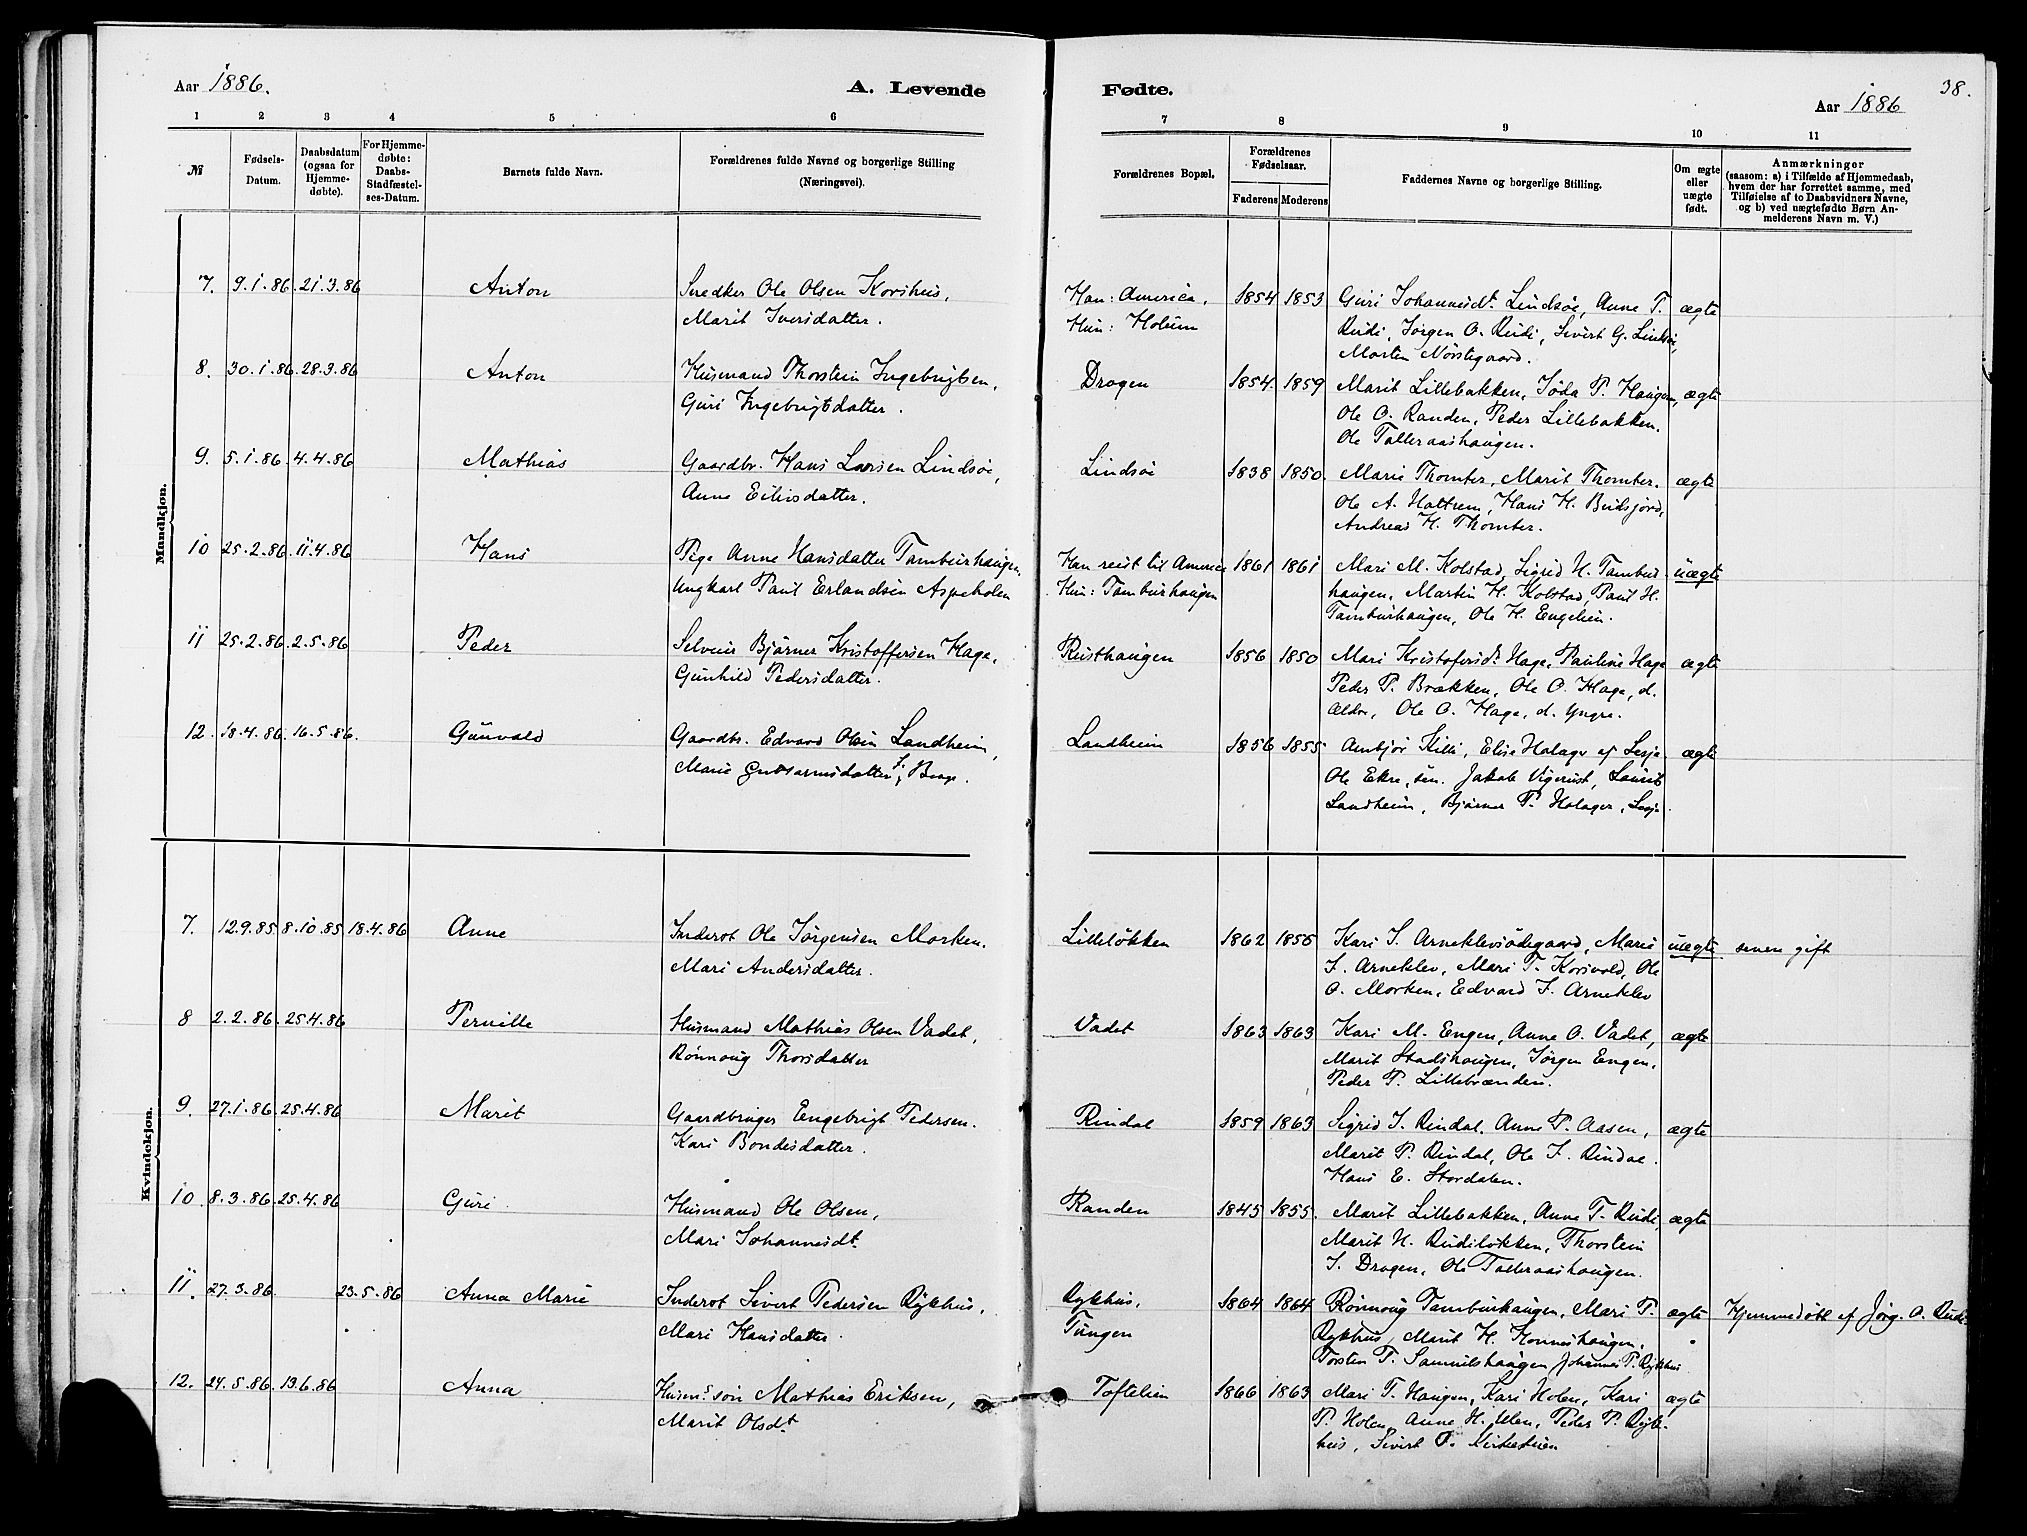 Aar 1886.
A. Levende
Fødte.
Aar 1886
38.
1 2 3 4 5 6 7 8 9 10 11
№
Fødsels-
Datum.
Daabsdatum
(ogsaa for
Hjemme-
døbte).
For Hjemme-
døbte:
Daabs-
Stadfæstel-
ses-Datum.
Barnets fulde Navn.
Forældrenes fulde Navne og borgerlige Stilling
(Næringsvei).
Forældrenes Bopæl.
Forældrenes
Fødselsaar.
Faderens Moderens
Faddernes Navne og borgerlige Stilling.
Om ægte
eller
uægte
født.
Anmærkninger
(saasom: a) i Tilfælde af Hjemmedaab,
hvem der har forrettet samme, med
Tilføielse af to Daabsvidners Navne,
og b) ved uægtefødte Børn An-
melderens Navn m. V.)
Mandkjøn.
7. 9.1.86. 21.3.86 Anton Snedker Ole Olsen Korshus, Han: America, 1854 1853 Guri Johannesdt. Lindsøe, Anne T. ægte
Marit Iversdatter. Hun: Holum Rudi, Jørgen O. Rudi, Sivert G. Lindsøe,
Morten Nørstegaard.
8. 30.1.86. 28.3.86 Anton Husmand Thorstein Ingebrigtsen, Drogen 1854. 1859 Marit Lillebakken, Jøda P. Haugen, ægte
Guri Ingebrigtsdatter. Ole O. Randen, Peder Lillebakken.
Ole Talleraashaugen.
9. 5.1.86. 4.4.86 Mathias Gaardbr. Hans Larsen Lindsøe, Lindsøe 1838 1850. Marie Thomter, Marit Thomter. ægte
Anne Eilivsdatter. Ole A. Hattrem, Hans H. Budsjord,
Andreas H. Thomter.
10 25.2.86. 11.4.86 Hans Pige Anne Hansdatter Tamburhaugen, Han reist til America 1861 1861 Mari M. Kolstad, Sigrid H. Tambur- uægte
Ungkarl Paul Erlandsen Aspeholen Hun: Tamburhaugen haugen, Martin H. Kolstad, Paul H.
Tamburhaugen, Ole H. Engelien.
11 25.2.86. 2.5.86 Peder Selveier Bjørner Kristoffersen Hage, Rusthaugen 1856 1850 Mari Kristofersdt. Hage, Pauline Hage ægte
Gunhild Pedersdatter. Peder P. Brækken, Ole O. Hage, d.
Ældre, Ole O. Hage, d. Yngre.
12 18.4.86. 16.5.86. Gunvald Gaardbr. Edvard Olsen Landheim, Landheim 1856 1855 Ambjør Killi, Elise Holager af Lesja ægte
Marie Guttormsdatter Ole Ekre, sen. Jakob Vigerust, Laurit
Landheim, Bjørner P. Holager, Lesja.
Kvindekjøn.
7. 12.9.85 8.10.85 18.4.86 Anne Inderst Ole Jørgensen Morken. Lilleløkken 1862 1856 Kari J. Arneklevsødegaard, Marie uægte senere gift
Mari Andersdatter. J. Arneklev, Mari T. Korsvold, Ole
O. Morken, Edvard J. Arneklev
8 2.2.86. 25.4.86 Pernille Husmand Mathias Olsen Vadet, Vadet 1863 1863 Kari M. Engen, Anne O. Vadet, ægte
Rønnoug Thorsdatter Marit Stadshaugen, Jørgen Engen,
Peder P. Lillebrænden.
9. 27.1.86. 25.4.86 Marit Gaardbruger Engebrigt Pedersen. Rindal 1859 1863 Sigrid J. Rindal, Anne P. Aasen, ægte
Kari Bondesdatter. Marit P. Rindal, Ole J. Rindal.
Hans E. Stordalen.
10. 8.3.86. 25.4.86 Guri Husmand Ole Olsen, Randen 1845 1855. Marit Lillebakken, Anne T. Rudi, ægte
Mari Johannesdt. Marit H. Rudiløkken, Thorstein
J. Drogen, Ole Talleraashaugen.
11. 27.3.86. 23.5.86 Anna Marie Inderst Sivert Pedersen Rykhus, Rykhus, 1864 1864 Rønnoug Tamburhaugen, Mari P. ægte Hjemmedøbt af Jørg. O. Rudi
Mari Hansdatter. Tungen Rykhus, Marit H. Honneshaugen,
Torsten T. Samuelshaugen Johannes P. Rykhus
12. 24.5.86. 13.6.86 Anna Husms. søn Mathias Eriksen, Toftelien 1866 1863 Mari T. Haugen, Kari Holen, Kari ægte
Marit Olsdt. P. Holen, Anne H. Ulen, Peder P. Ryk-
hus, Sivert P.